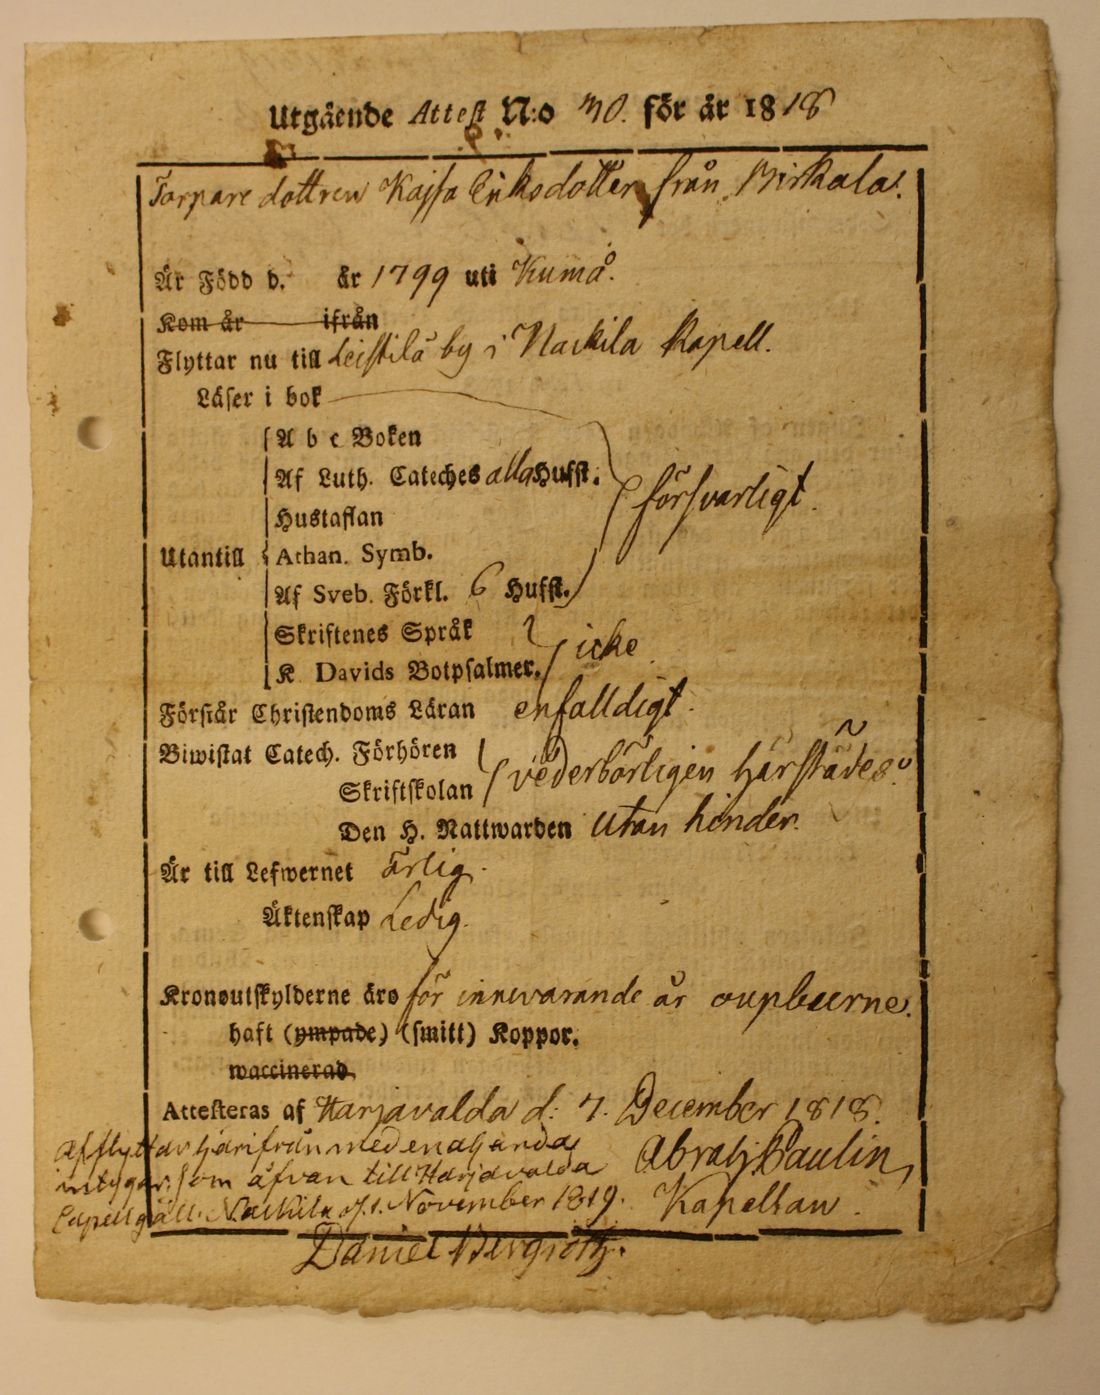 Utgående Attest N:o 30. för år 1818
Torpare dottren Kajsa Eriksdotter från Birkala.
Är Född d. år 1799 uti Kumå.
Kom år ifrån
Flyttar nu till Leistilä by i Nackila Kapell.
Läser i bok
A b c Boken
Af Luth. Cateches alla Hufst.
Hustaflan
försvarligt.
Utantill
Athan. Symb.
Af Sveb. Förkl. 6 Hufst.
Skriftenes Språk
K Davids Botpsalmer.
icke
Förstår Christendoms Läran enfalldigt.
Biwistat Catech. Förhören
Skriftskolan
vederbörligen härstädes.
Den H. Nattwarden utan hinder.
Är till Lefwernet ärlig.
Äktenskap Ledig.
Kronoutskylderne äro för innevarande år oupburne.
haft (ympade) (smitt) Koppor.
waccinerad.
Attesteras af Harjavalda d: 7. December 1818.
Afflyttar härifrån med enahanda
intygan som åfvan till Harjavalda
Capellgäll. Nackila d. 1. November 1819.
Abrah. Paulin,
Kapellan.
Daniel Bergroth.